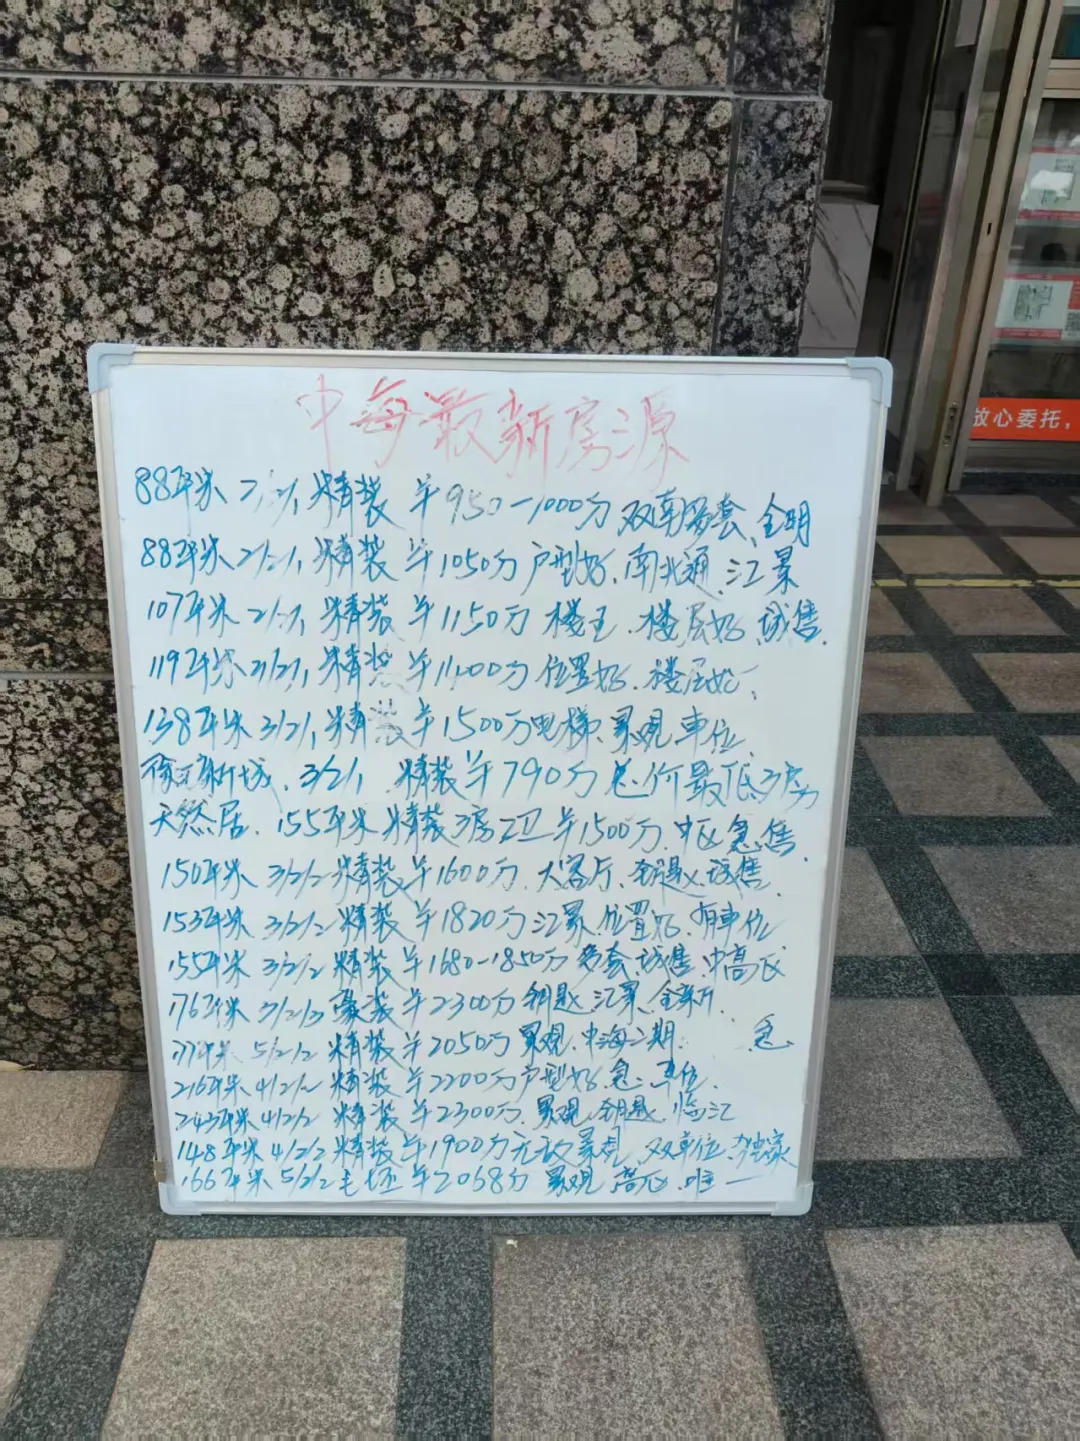 中海最新房源
88平米 2/2/1 精装 ¥950-1000万 双南多套、全明
88平米 2/2/1 精装 ¥1050万 户型好、南北通、江景
107平米 2/2/1 精装 ¥1150万 楼王、楼层好、诚售
119平米 2/2/1 精装 ¥1400万 位置好、楼层好、
138平米 3/2/1 精装 ¥1500万 电梯、景观 车位、
新城、3/2/1 精装 ¥790万 总价最低3房
天然居、155平米 精装3房2卫 ¥1500万、中区 急售、
150平米 3/2/2 精装 ¥1600万、大客厅、钥匙、诚售
153平米 3/2/2 精装 ¥1820万 江景、位置好、有车位
155平米 3/2/2 精装 ¥1680-1850万 多套、诚售、中高区
176平米 3/2/2 豪装 ¥2300万 钥匙、江景、全新、
平米 5/2/2 精装 ¥2050万 景观、中海二期、 急
216平米 4/2/2 精装 ¥2200万 户型好 急、车位、
243平米 4/2/2 精装 ¥2300万、景观、钥匙、临江
148平米 4/2/2 精装 ¥1900万 无敌景观、双车位、独家
166平米 5/2/2 毛坯 ¥2068万 景观 高区、唯一
放心委托，